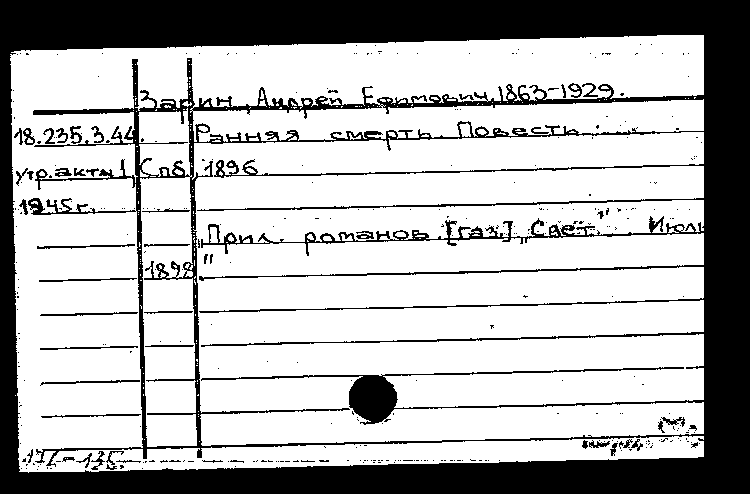 Зарин, Андрей Ефимович, 1863-1929.
18.235.3.44. Ранняя смерть. Повесть.
утр. акты 1 Спб, 1896
1945г.
„Прил. романов [газ.] „Свет" Июль
1898."